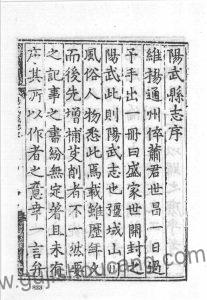 陽武縣志序
維揚通州倅蕭君世昌一日過
予手出一冊曰盛家世開封之
陽武此則陽武志也疆域山川
風俗人物悉此焉載雖歷年久
而後先增補芟削者不一然要
之記事之書紛無定着且未有
序其所以作者之意幸一言弁